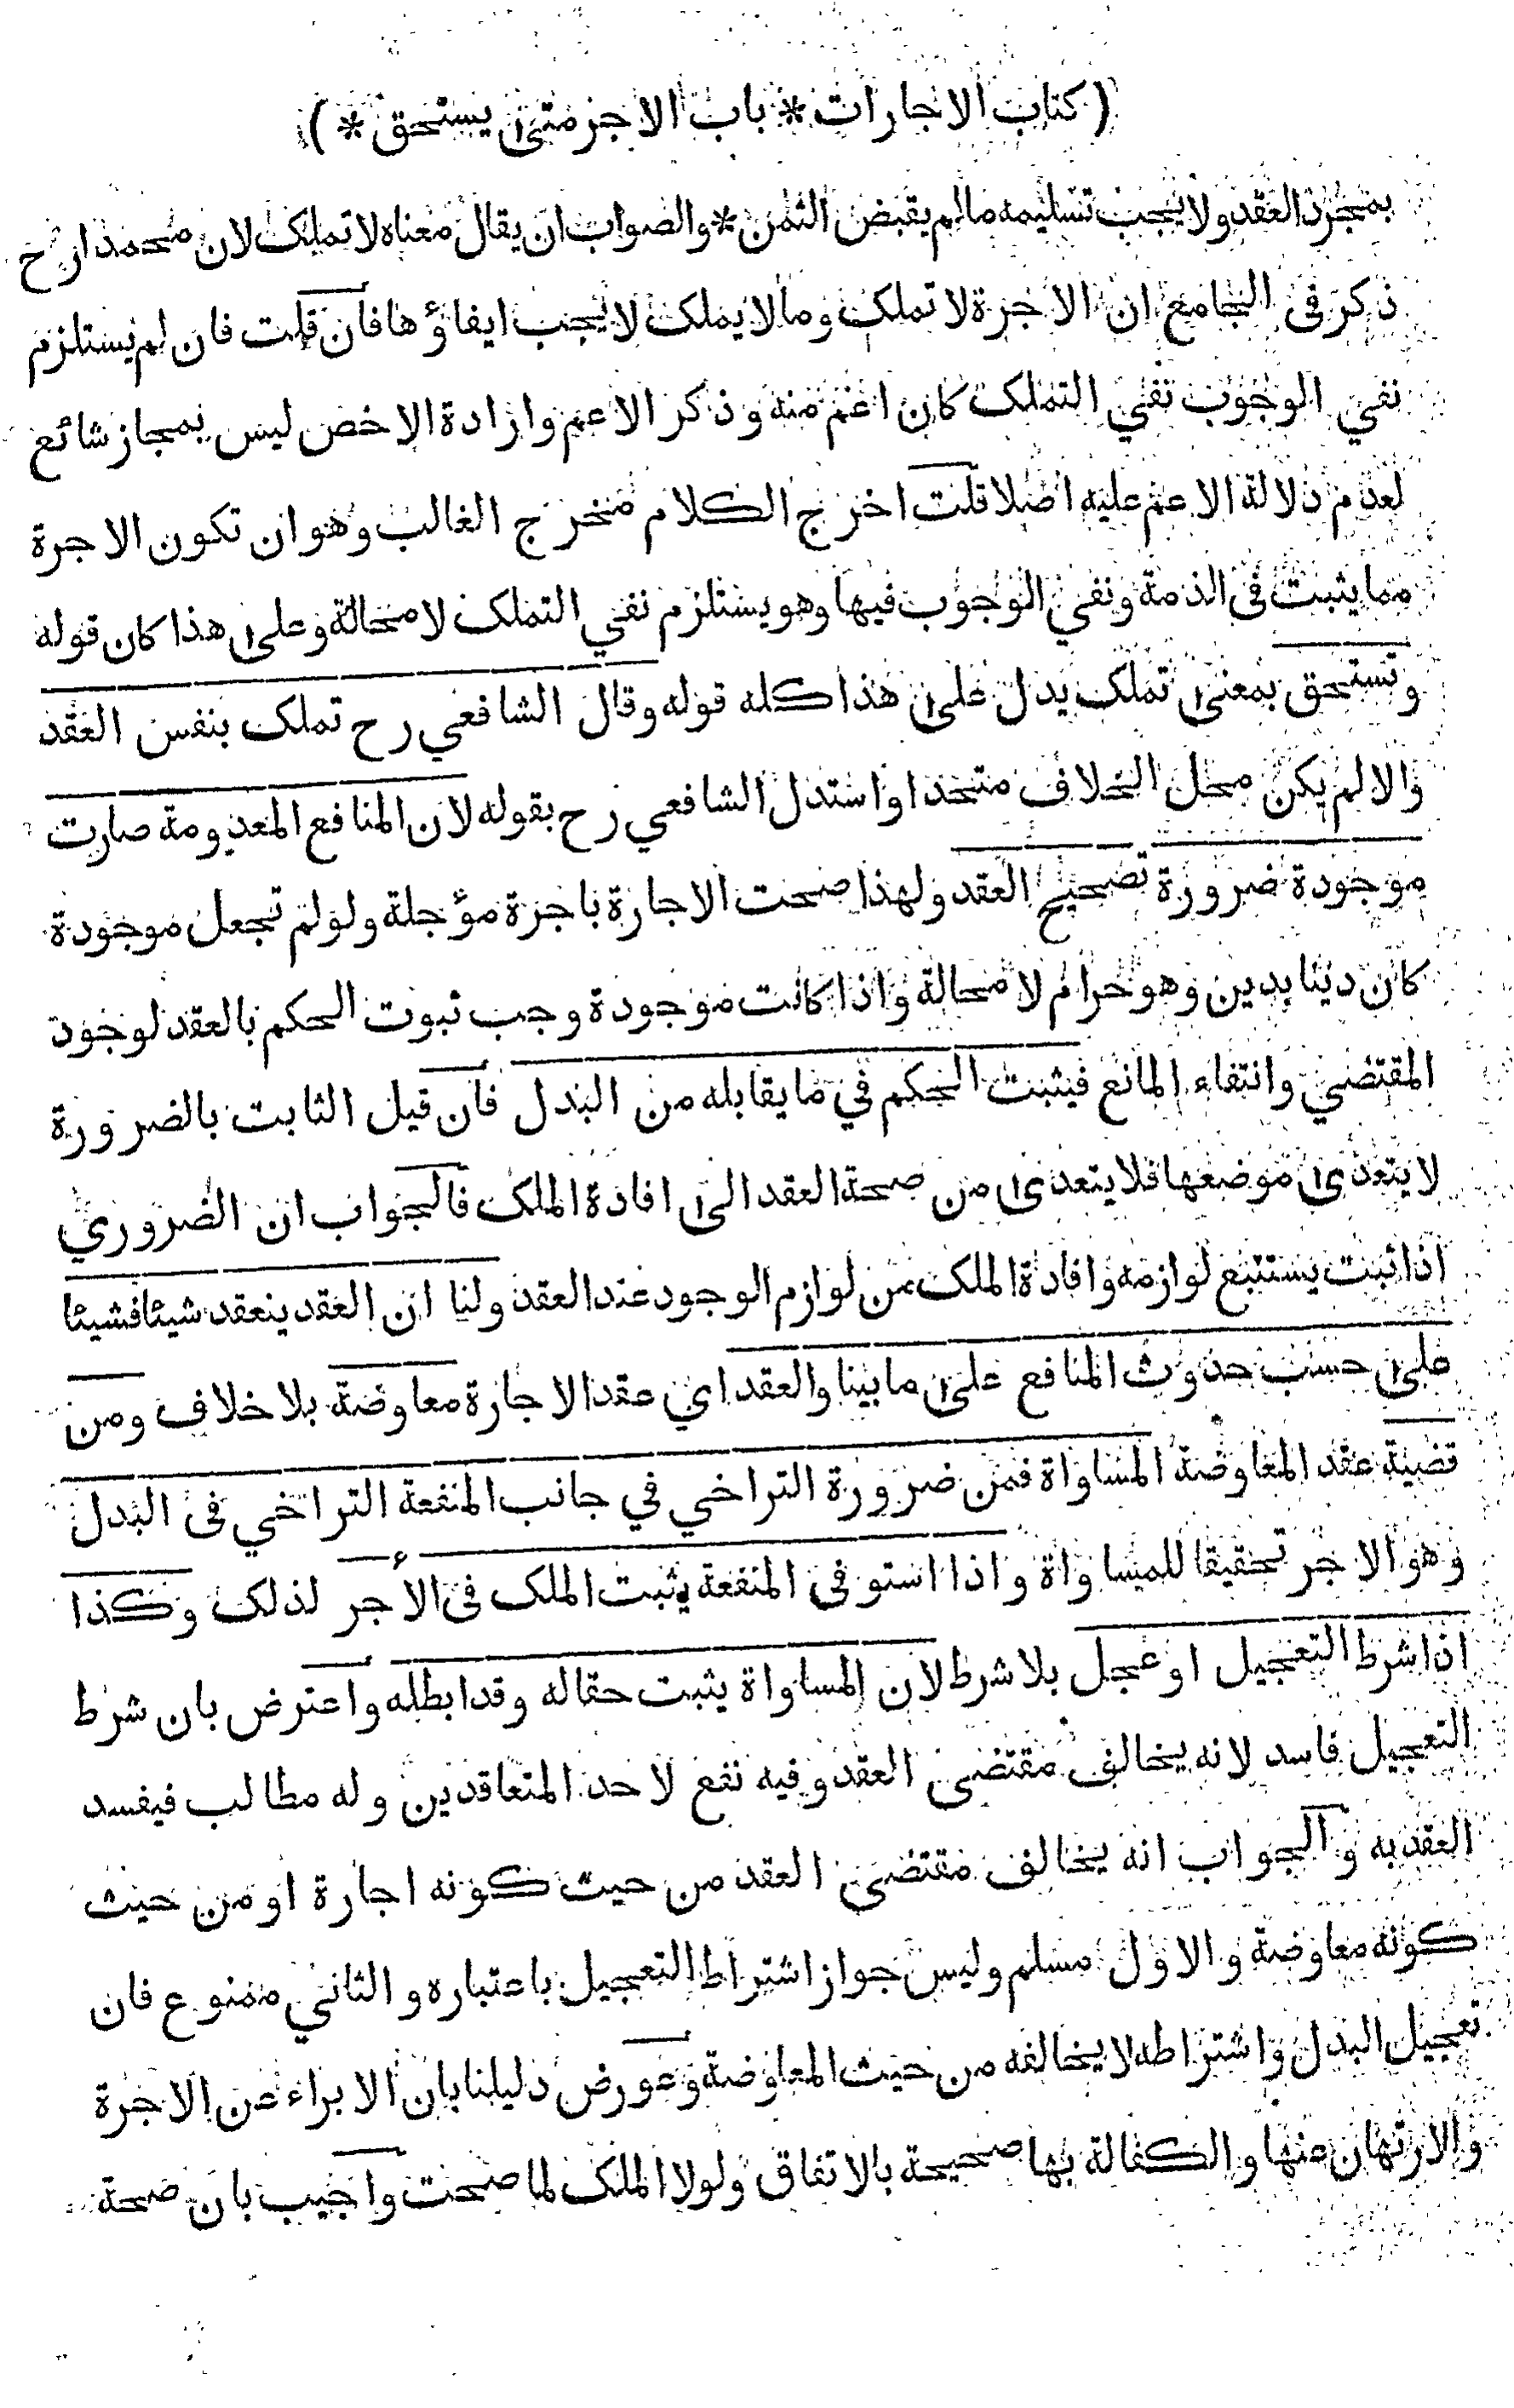 ( كتاب الاجارات * باب الاجر متى يستحق * )
بمجرد العقد ولا يجب تسليمه ما لم يقبض الثمن * والصواب ان يقال معناه لا تملك لان محمدا رح
ذكر فى الجامع ان الاجرة لا تملك وما لا يملك لا يجب ايفاؤها فان قلت فان لم يستلزم
نفي الوجوب نفي التملك كان اعم منه وذكر الاعم وارادة الاخص ليس بمجاز شائع
لعدم دلالة الاعم عليه اصلا قلت اخرج الكلام مخرج الغالب وهو ان تكون الاجرة
مما يثبت فى الذمة ونفي الوجوب فيها وهو يستلزم نفي التملك لا محالة وعلى هذا كان قوله
وتستحق بمعنى تملك يدل على هذا كله قوله وقال الشافعي رح تملك بنفس العقد
والا لم يكن محل الخلاف متحدا واستدل الشافعي رح بقوله لان المنافع المعدومة صارت
موجودة ضرورة تصحيح العقد ولهذا صحت الاجارة باجرة مؤجلة ولو لم تجعل موجودة
كان دينا بدين وهو حرام لا محالة واذا كانت موجودة وجب ثبوت الحكم بالعقد لوجود
المقتضي وانتفاء المانع فيثبت الحكم في ما يقابله من البدل فان قيل الثابت بالضرورة
لا يتعدى موضعها فلا يتعدى من صحة العقد الى افادة الملك فالجواب ان الضروري
اذا ثبت يستتبع لوازمه وافادة الملك من لوازم الوجود عند العقد ولنا ان العقد ينعقد شيئا فشيئا
على حسب حدوث المنافع على ما بينا والعقد اي عقد الاجارة معاوضة بلا خلاف ومن
قضية عقد المعاوضة المساواة فمن ضرورة التراخي في جانب المنفعة التراخي فى البدل
وهو الاجر تحقيقا للمساواة واذا استوفى المنفعة يثبت الملك فى الأجر لذلك وكذا
اذا شرط التعجيل او عجل بلا شرط لان المساواة يثبت حقا له وقد ابطله واعترض بان شرط
التعجيل فاسد لانه يخالف مقتضى العقد وفيه نفع لاحد المتعاقدين وله مطالب فيفسد
العقد به والجواب انه يخالف مقتضى العقد من حيث كونه اجارة او من حيث
كونه معاوضة والاول مسلم وليس جواز اشتراط التعجيل باعتباره والثاني ممنوع فان
تعجيل البدل واشتراطه لا يخالفه من حيث المعاوضة وعورض دليلنا بان الابراء عن الاجرة
والارتهان عنها والكفالة بها صحيحة بالاتفاق ولولا الملك لما صحت واجيب بان صحة